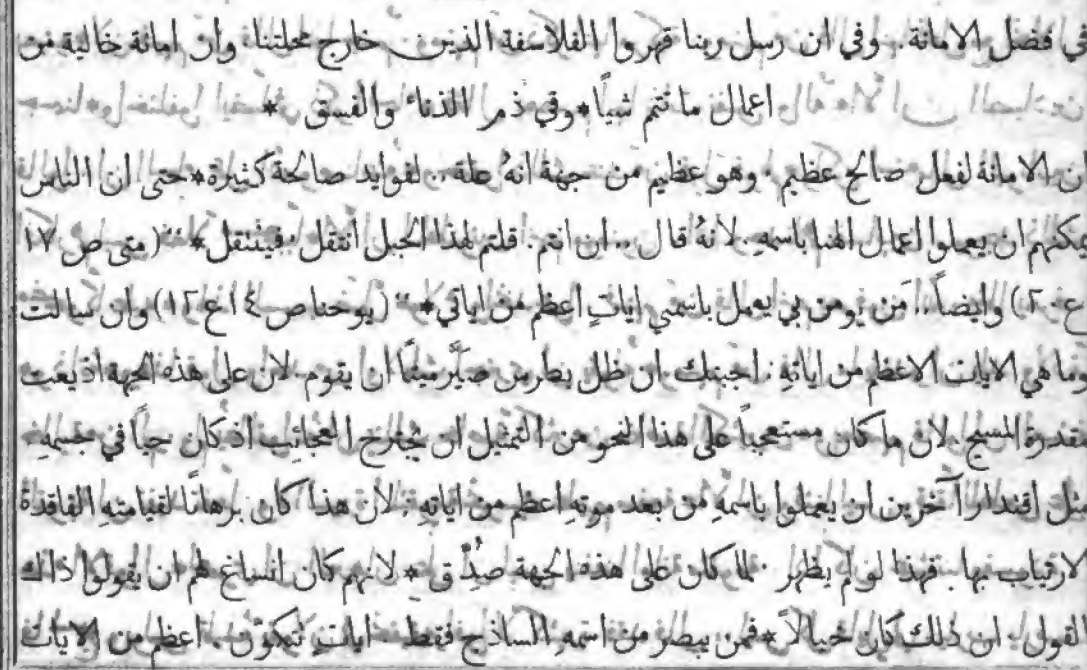 في فضل الامانة. وفي ان رسل ربنا قهروا الفلاسفة الذين خارج محلتنا. وان امانة خالية من
اعمال ما تنم شياً * وفي ذم الذناء والفسق *
ان الامانة لفعل صالح عظيم. وهو عظيم من جهة انهُ علة.. لفوايد صالحة كثيرة * حتى ان الناس
يمكنهم ان يعملوا اعمال الهنا باسمهِ. لانهُ قال.. ان انتم. قلتم لهذا الجبل انتقل. فينتقل * " (متى ص ١٧
ع ٢٠) وايضاً.. من يومن بي يعمل باسمي اياتٍ اعظم من اياتي * " (يوحنا ص ١٤ ع ١٢) وان سالت
وما هي الايات الاعظم من اياتهِ. اجبتك ان ظل بطرس صيَّر ميتًا ان يقوم. لان على هذه الجهة اذيعت
مقدرة المسيح. لان ما كان مستعجباً على هذا النحو من التمثيل ان يخترح العجائب اذ كان حياً في جسمهِ.
مثل اقتدار آخرين ان يعملوا باسمهِ من بعد موتهِ اعظم من اياتهِ. لان هذا كان برهانًا لقيامتهِ الفاقدة
الارتياب بها. فهذا لو لم يظهر. لما كان على هذه الجهة صدِّق * لانهم كان انساغ لهم ان يقولوا ذاك
القول. ان ذلك كان خيالاً * فمن يبصر من اسمهِ الساذج فقط ايات تتكون. اعظم من الايات